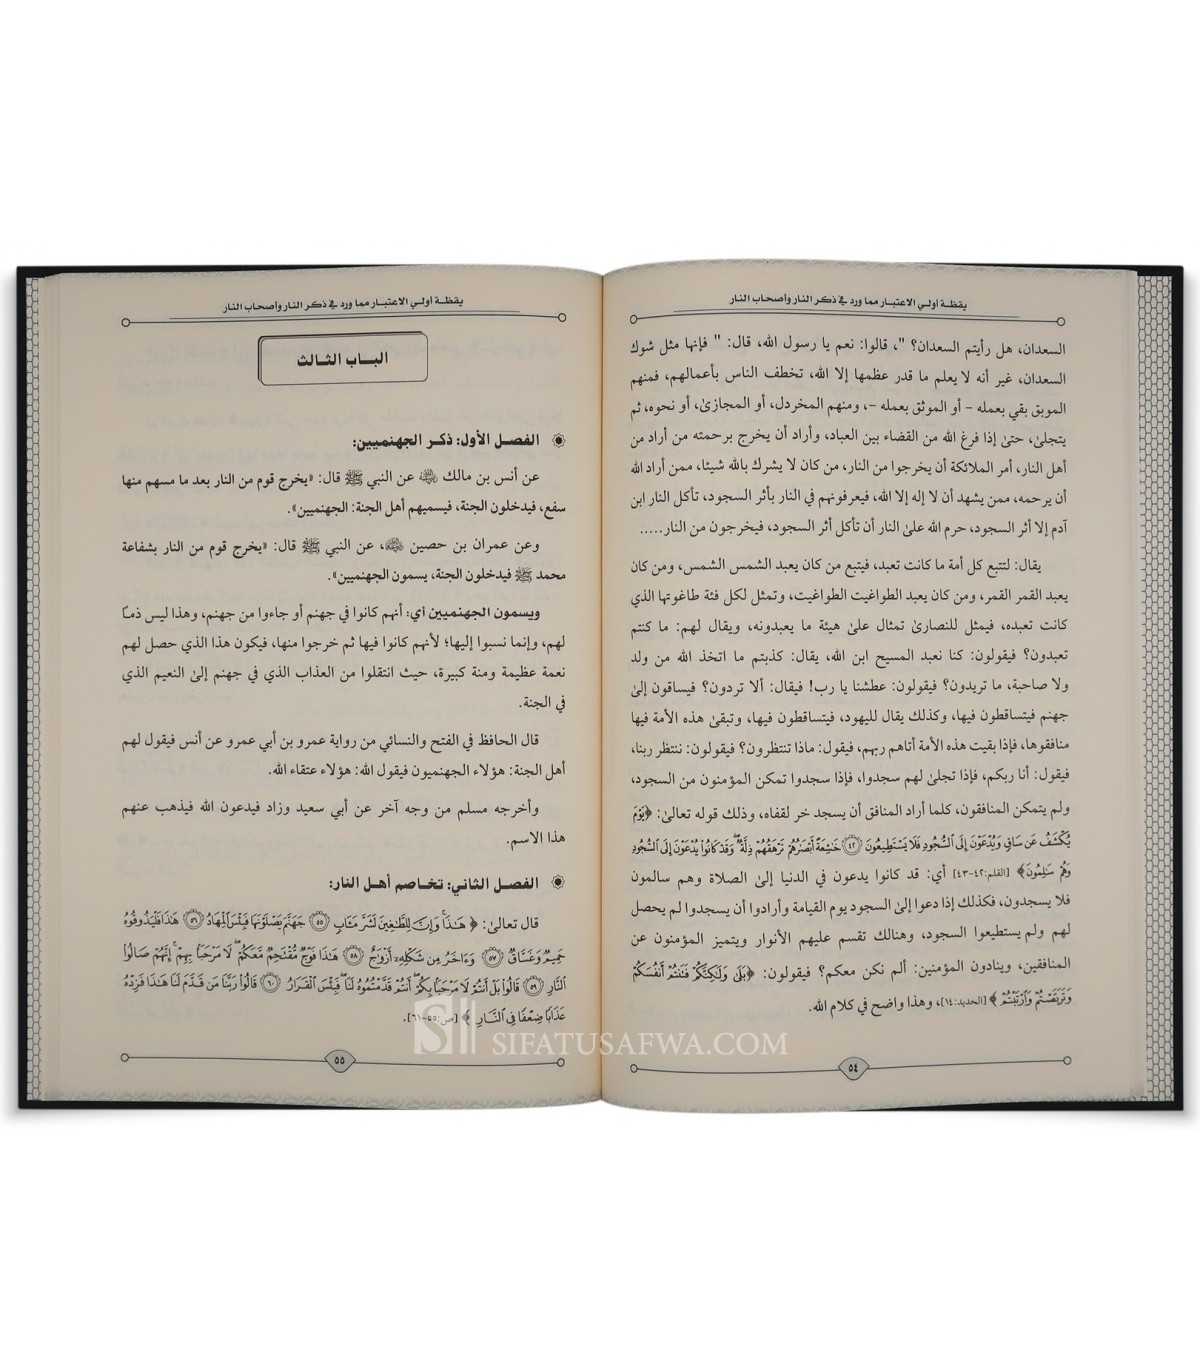 يقظة أولي الاعتبار مما ورد في ذكر النار وأصحاب النار
السعدان، هل رأيتم السعدان؟ "، قالوا: نعم يا رسول الله، قال: " فإنها مثل شوك
السعدان، غير أنه لا يعلم ما قدر عظمها إلا الله، تخطف الناس بأعمالهم، فمنهم
الموبق بقي بعمله – أو الموثق بعمله –، ومنهم المخردل، أو المجازىٰ، أو نحوه، ثم
يتجلىٰ، حتىٰ إذا فرغ الله من القضاء بين العباد، وأراد أن يخرج برحمته من أراد من
أهل النار، أمر الملائكة أن يخرجوا من النار، من كان لا يشرك بالله شيئا، ممن أراد الله
أن يرحمه، ممن يشهد أن لا إله إلا الله، فيعرفونهم في النار بأثر السجود، تأكل النار ابن
آدم إلا أثر السجود، حرم الله علىٰ النار أن تأكل أثر السجود، فيخرجون من النار.....
يقال: لتتبع كل أمة ما كانت تعبد، فيتبع من كان يعبد الشمس الشمس، ومن كان
يعبد القمر القمر، ومن كان يعبد الطواغيت الطواغيت، وتمثل لكل فئة طاغوتها الذي
كانت تعبده، فيمثل للنصارىٰ تمثال علىٰ هيئة ما يعبدونه، ويقال لهم: ما كنتم
تعبدون؟ فيقولون: كنا نعبد المسيح ابن الله، يقال: كذبتم ما اتخذ الله من ولد
ولا صاحبة، ما تريدون؟ فيقولون: عطشنا يا رب! فيقال: ألا تردون؟ فيساقون إلىٰ
جهنم فيتساقطون فيها، وكذلك يقال لليهود، فيتساقطون فيها، وتبقىٰ هذه الأمة فيها
منافقوها، فإذا بقيت هذه الأمة أتاهم ربهم، فيقول: ماذا تنتظرون؟ فيقولون: ننتظر ربنا،
فيقول: أنا ربكم، فإذا تجلىٰ لهم سجدوا، فإذا سجدوا تمكن المؤمنون من السجود،
ولم يتمكن المنافقون، كلما أراد المنافق أن يسجد خر لقفاه، وذلك قوله تعالىٰ: ﴿يَوْمَ
يُكْشَفُ عَن سَاقٍ وَيُدْعَوْنَ إِلَى ٱلسُّجُودِ فَلَا يَسْتَطِيعُونَ ﴿٤٢﴾ خَٰشِعَةً أَبْصَٰرُهُمْ تَرْهَقُهُمْ ذِلَّةٌ ۖ وَقَدْ كَانُوا۟ يُدْعَوْنَ إِلَى ٱلسُّجُودِ
وَهُمْ سَٰلِمُونَ﴾ [القلم:٤٢-٤٣] أي: قد كانوا يدعون في الدنيا إلىٰ الصلاة وهم سالمون
فلا يسجدون، فكذلك إذا دعوا إلىٰ السجود يوم القيامة وأرادوا أن يسجدوا لم يحصل
لهم ولم يستطيعوا السجود، وهنالك تقسم عليهم الأنوار ويتميز المؤمنون عن
المنافقين، وينادون المؤمنين: ألم نكن معكم؟ فيقولون: ﴿بَلَىٰ وَلَٰكِنَّكُمْ فَتَنتُمْ أَنفُسَكُمْ
وَتَرَبَّصْتُمْ وَٱرْتَبْتُمْ﴾ [الحديد:١٤]، وهذا واضح في كلام الله.
٥٤
يقظة أولي الاعتبار مما ورد في ذكر النار وأصحاب النار
الباب الثالث
الفصل الأول: ذكر الجهنميين:
عن أنس بن مالك رضي الله عنه عن النبي ﷺ قال: «يخرج قوم من النار بعد ما مسهم منها
سفع، فيدخلون الجنة، فيسميهم أهل الجنة: الجهنميين».
وعن عمران بن حصين رضي الله عنه، عن النبي ﷺ قال: «يخرج قوم من النار بشفاعة
محمد ﷺ فيدخلون الجنة، يسمون الجهنميين».
ويسمون الجهنميين أي: أنهم كانوا في جهنم أو جاءوا من جهنم، وهذا ليس ذمًا
لهم، وإنما نسبوا إليها؛ لأنهم كانوا فيها ثم خرجوا منها، فيكون هذا الذي حصل لهم
نعمة عظيمة ومنة كبيرة، حيث انتقلوا من العذاب الذي في جهنم إلىٰ النعيم الذي
في الجنة.
قال الحافظ في الفتح والنسائي من رواية عمرو بن أبي عمرو عن أنس فيقول لهم
أهل الجنة: هؤلاء الجهنميون فيقول الله: هؤلاء عتقاء الله.
وأخرجه مسلم من وجه آخر عن أبي سعيد وزاد فيدعون الله فيذهب عنهم
هذا الاسم.
الفصل الثاني: تخاصم أهل النار:
قال تعالىٰ: ﴿هَٰذَا ۚ وَإِنَّ لِلطَّٰغِينَ لَشَرَّ مَـَٔابٍ ﴿٥٥﴾ جَهَنَّمَ يَصْلَوْنَهَا فَبِئْسَ ٱلْمِهَادُ ﴿٥٦﴾ هَٰذَا فَلْيَذُوقُوهُ
حَمِيمٌ وَغَسَّاقٌ ﴿٥٧﴾ وَءَاخَرُ مِن شَكْلِهِۦٓ أَزْوَٰجٌ ﴿٥٨﴾ هَٰذَا فَوْجٌ مُّقْتَحِمٌ مَّعَكُمْ ۖ لَا مَرْحَبًۢا بِهِمْ ۚ إِنَّهُمْ صَالُوا۟
ٱلنَّارِ ﴿٥٩﴾ قَالُوا۟ بَلْ أَنتُمْ لَا مَرْحَبًۢا بِكُمْ ۖ أَنتُمْ قَدَّمْتُمُوهُ لَنَا ۖ فَبِئْسَ ٱلْقَرَارُ ﴿٦٠﴾ قَالُوا۟ رَبَّنَا مَن قَدَّمَ لَنَا هَٰذَا فَزِدْهُ
عَذَابًا ضِعْفًا فِى ٱلنَّارِ﴾ [ص:٥٥-٦١].
٥٥
SIFATUSAFWA.COM